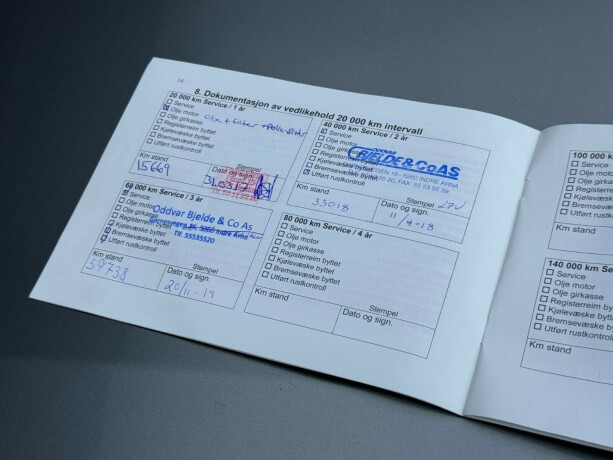 8. Dokumentasjon av vedlikehold 20 000 km intervall
20 000 km Service / 1 år
Service
Olje motor
Olje girkasse
Registerreim byttet
Kjølevæske byttet
Bremsevæske byttet
Utført rustkontroll
Km stand
Stempel
Dato og sign.
15669
310317
40 000 km Service / 2 år
Service
Olje motor
Olje girkasse
Registerreim
Kjølevæske
Bremsevæske
Utført rustkontroll
ODDVAR
BJELDE & CO AS
5260 INDRE ARNA
Km stand
Stempel
Dato og sign.
33018
11/4-18
60 000 km Service / 3 år
Service
Olje motor
Olje girkasse
Registerreim byttet
Kjølevæske byttet
Bremsevæske byttet
Utført rustkontroll
Oddvar Bjelde & Co As
5260 Indre Arna
Tlf. 55535520
Km stand
Stempel
Dato og sign.
59738
20/11-19
80 000 km Service / 4 år
Service
Olje motor
Olje girkasse
Registerreim byttet
Kjølevæske byttet
Bremsevæske byttet
Utført rustkontroll
Km stand
Stempel
Dato og sign.
100 000
Service
Olje motor
Olje girkasse
Registerreim
Kjølevæske
Bremsevæske
Utført rustk
Km stand
140 000 km Ser
Service
Olje motor
Olje girkasse
Registerreim by
Kjølevæske bytt
Bremsevæske by
Utført rustkontro
Km stand